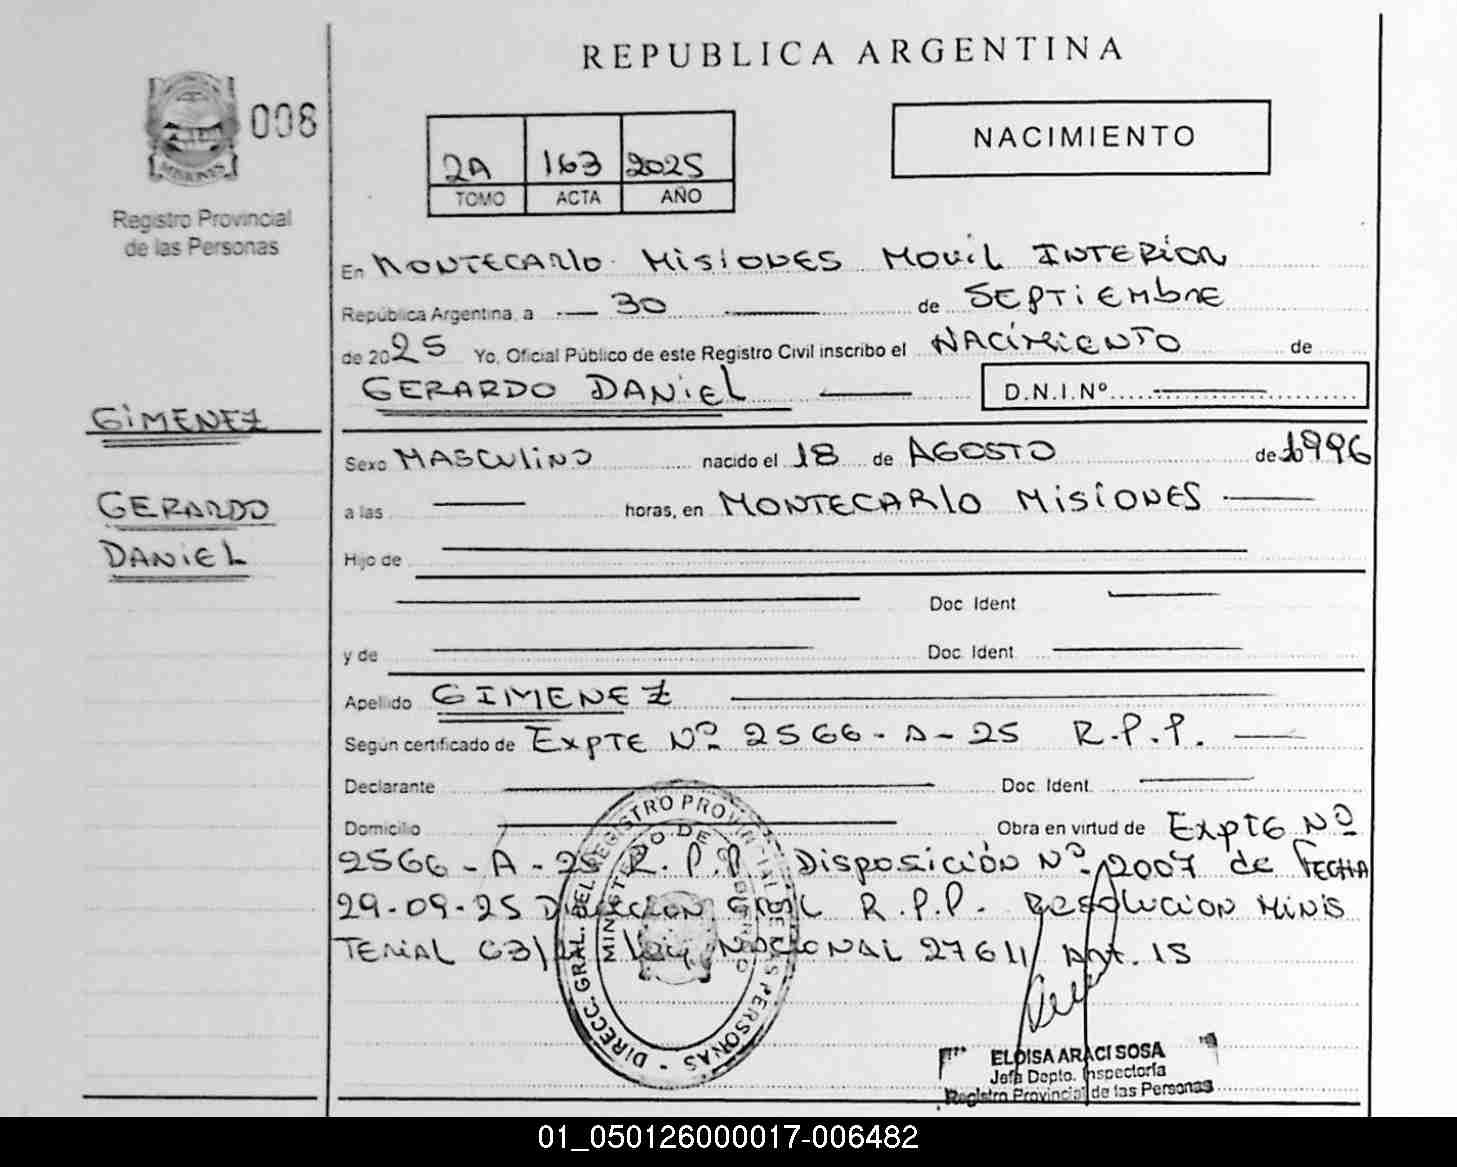 REPUBLICA ARGENTINA
008
MISIONES
Registro Provincial
de las Personas
NACIMIENTO
2A 163 2025
TOMO ACTA AÑO
En MONTECARLO MISIONES MOVIL INTERIOR
República Argentina, a 30 de SEPTIEMBRE
de 2025 Yo, Oficial Público de este Registro Civil inscribo el NACIMIENTO de
GERARDO DANIEL D.N.I.Nº
GIMENEZ
GERARDO
DANIEL
Sexo MASCULINO nacido el 18 de AGOSTO de 1996
a las horas, en MONTECARLO MISIONES
Hijo de
Doc. Ident.
y de Doc. Ident.
Apellido GIMENEZ
Según certificado de EXPTE Nº 2566-A-25 R.P.P.
Declarante Doc. Ident.
Domicilio Obra en virtud de EXPTE Nº
2566-A-25 R.P.P. DISPOSICIÓN Nº 2007 de FECHA
29-09-25 DIRECCION GRAL R.P.P. RESOLUCION MINIS
TERIAL Ley NACIONAL 27611 Art. 15
DIRECC. GRAL. DEL REGISTRO PROVINCIAL DE LAS PERSONAS
MINISTERIO DE GOBIERNO
ELOISA ARACI SOSA
Jefa Depto. Inspectoría
Registro Provincial de las Personas
01_050126000017-006482